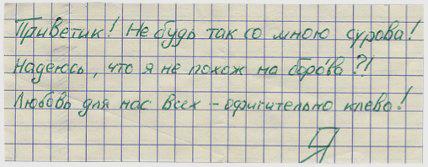 Приветик! Не будь так со мною сурова!
Надеюсь, что я не похож на боро́ва?!
Любовь для нас всех – офигительно клёво!
Я